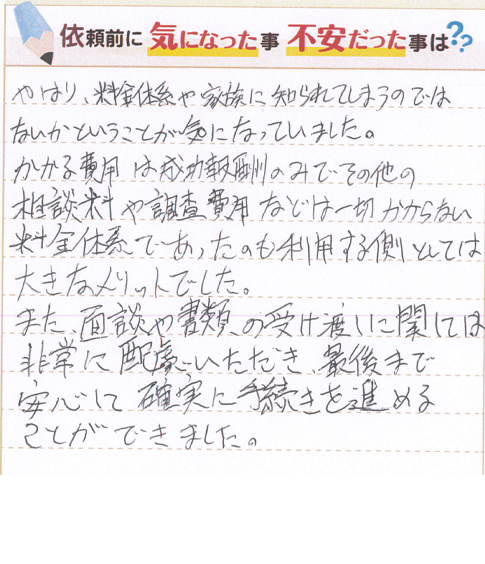 依頼前に気になった事不安だった事は??
やはり、料金体系や家族に知られてしまうのでは
ないかということが気になっていました。
かかる費用は成功報酬のみでその他の
相談料や調査費用などは一切かからない
料金体系であったのも利用する側としては
大きなメリットでした。
また、面談や書類の受け渡しに関しては
非常に配慮いただき、最後まで
安心して確実に手続きを進める
ことができました。